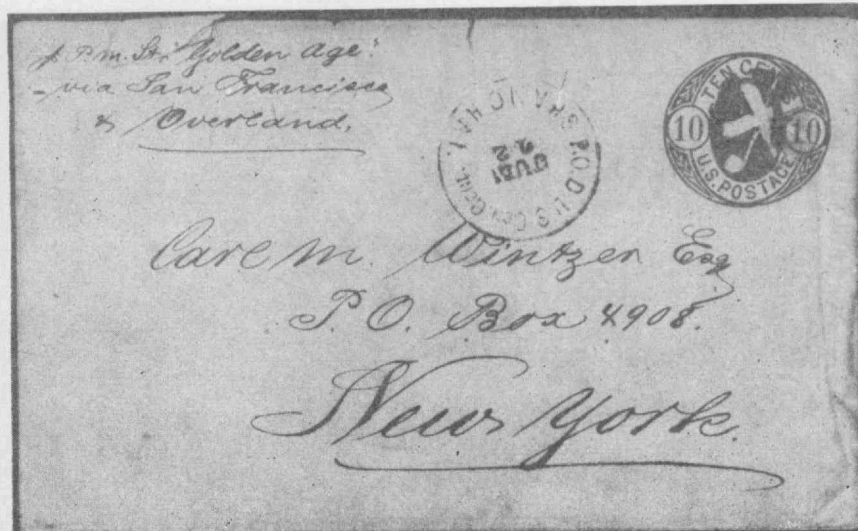 P.M. Str "Golden Age"
- via San Francisco
& Overland.
SHANGHAI
P.O.D. U.S. Con. Genl.
JUL
2
TEN CENTS
10 10
U.S. POSTAGE
Care M. Wintzer Esq
P. O. Box 4908.
New York.